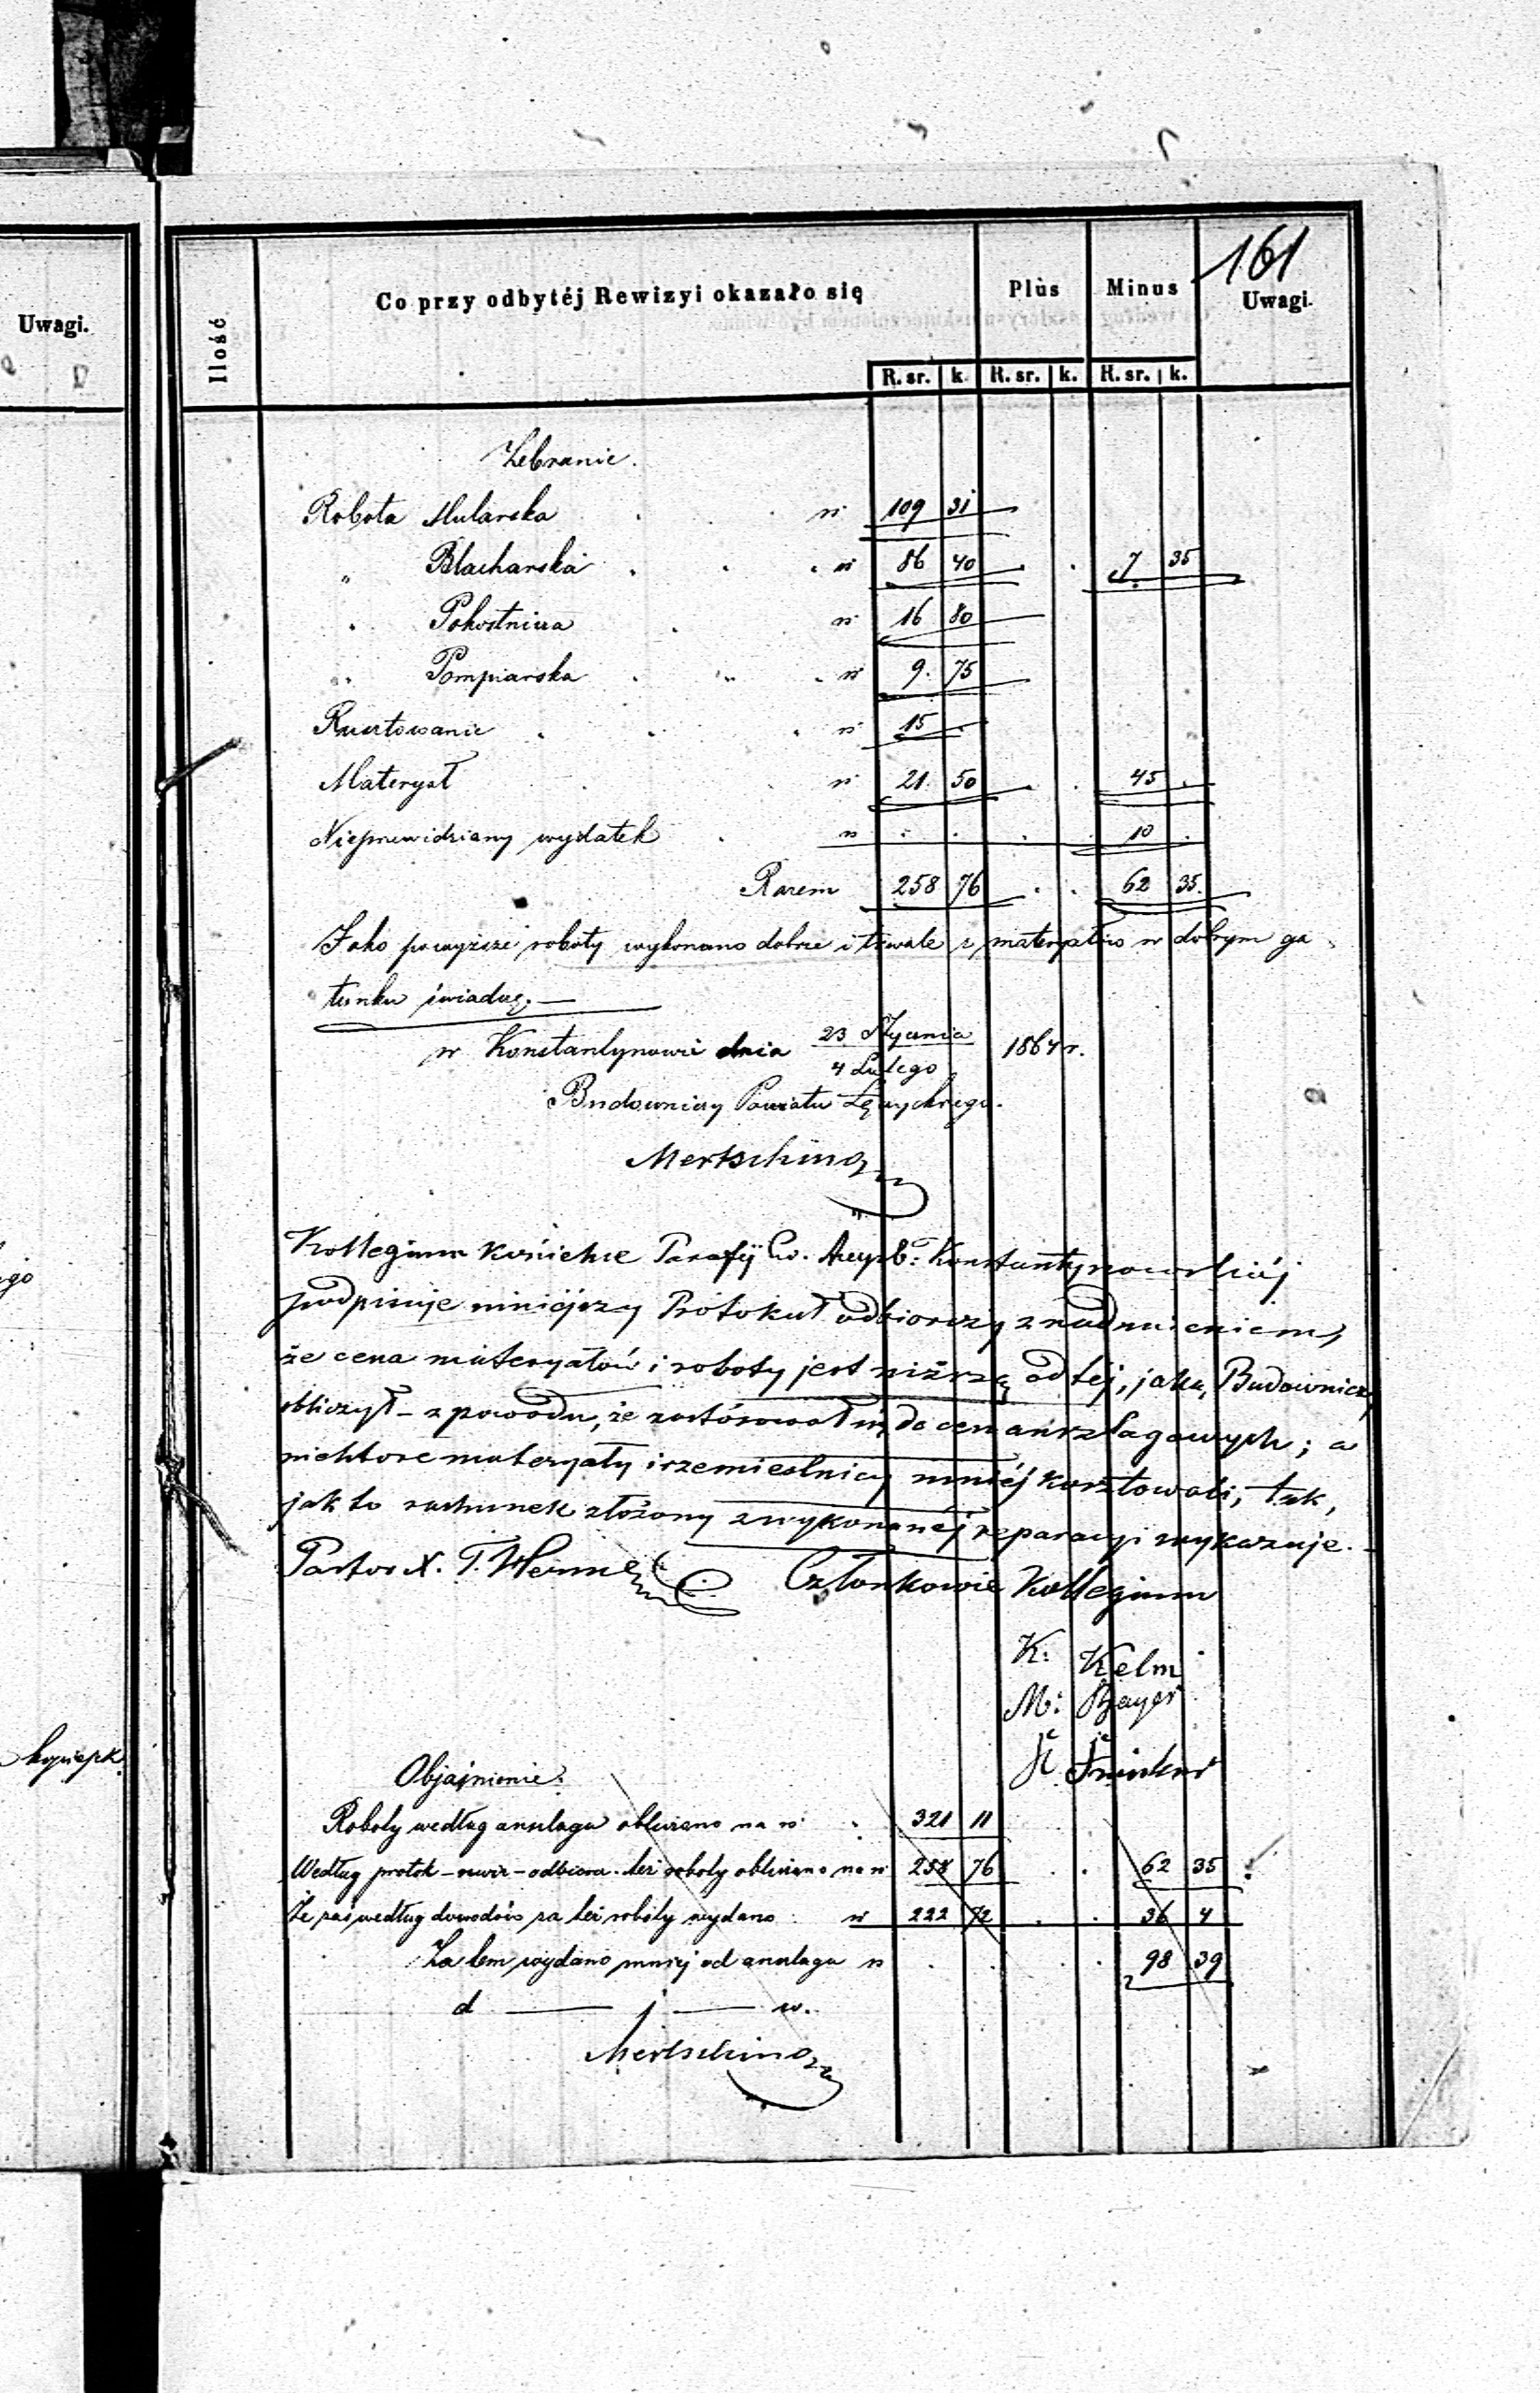 161
Uwagi.
Ilość
Co przy odbytéj Rewizyi okazało się
Plùs
Minus
Uwagi.
R. sr. k. R. sr. k. R. sr. k.
Zebranie.
Robota Mularska rs 109 31
" Blacharska rs 86 40 7 35
" Pokostnicza rs 16 80
" Pompiarska rs 9. 75
rs 15
Materyał rs 21. 50 45
Nieprzewidziany wydatek rs 10
Razem 258 76 62 35.
Jako powyższe roboty wykonano dobrze i trwale z materyałów w dobrym ga
tunku świadczę.—
w Konstantynowie dnia 23 Stycznia / 4 Lutego 1867 r.
Budowniczy Powiatu Łęczyckiego.
Mertsching
Kollegium Kościelne Parafii Ew. Augsb: Konstantynowskiéj
podpisuje niniéjszy Protokuł odbiorczy z nadmieniem,
że cena materyałów i roboty jest niższą od téj, jaką Budowniczy
obliczył – z powodu, że zastósował się do cen anszlagowych; a
niektore materyały i rzemieslnicy mniéj kosztowali, tak,
jak to rachunek złożony z wykonanéj reparacyi wykazuje.
Pastor X. T.
Członkowie Kollegium
K: Kelm
M: Bayer
Objaśnienie:
Roboty według anszlagu obliczono na rs 321 11
Według protok – rewiz – odbiorcz. też roboty obliczono na rs 258 76 62 35
Że zaś według dowodów za też roboty wydano rs 222 72 36 4
Zatem wydano mniéj od anszlagu rs 98 39
d — j — w.
Mertsching
go
kopiejk.